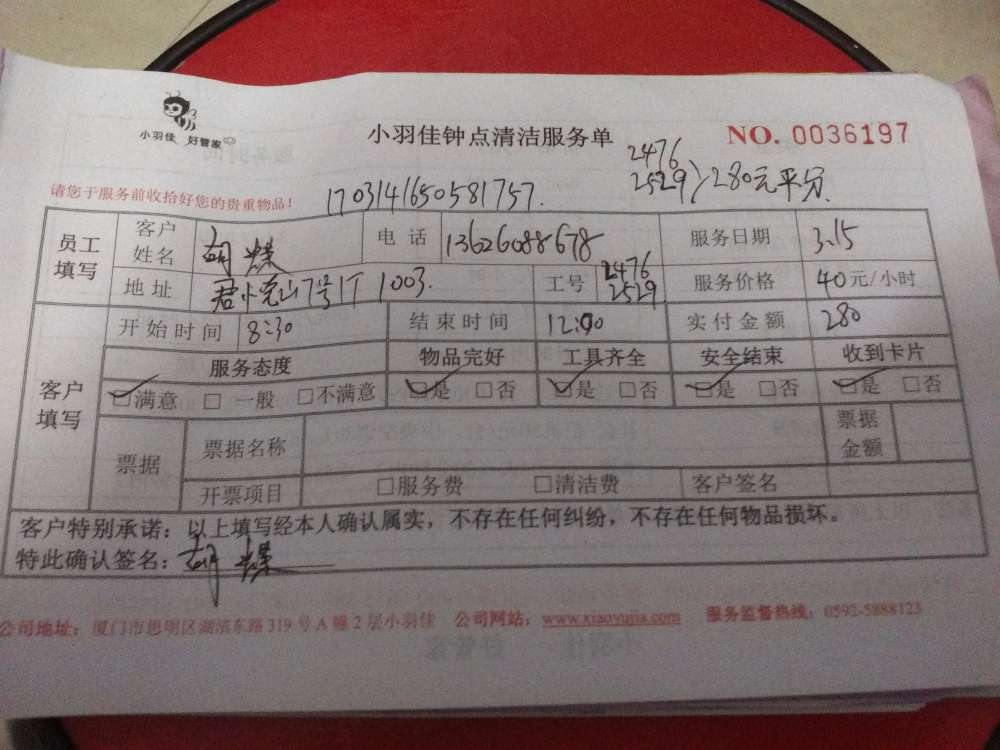 小羽佳 好管家
小羽佳钟点清洁服务单
NO. 0036197
2476
2529 } 280元平分
请您于服务前收拾好您的贵重物品！
170314165058175７
员工填写 客户姓名 胡 电话 13626088678 服务日期 3.15
地址 7号 1003. 工号 2476 2529 服务价格 40元/小时
客户填写 开始时间 8:30 结束时间 12:00 实付金额 280
服务态度 物品完好 工具齐全 安全结束 收到卡片
☑满意 □一般 □不满意 ☑是 □否 ☑是 □否 ☑是 □否 ☑是 □否
票据 票据名称 票据金额
开票项目 □服务费 □清洁费 客户签名
客户特别承诺：以上填写经本人确认属实，不存在任何纠纷，不存在任何物品损坏。
特此确认签名：胡
公司地址：厦门市思明区湖滨东路319号A幢2层小羽佳 公司网站：www.xiaoyujia.com 服务监督热线：0592-5888123